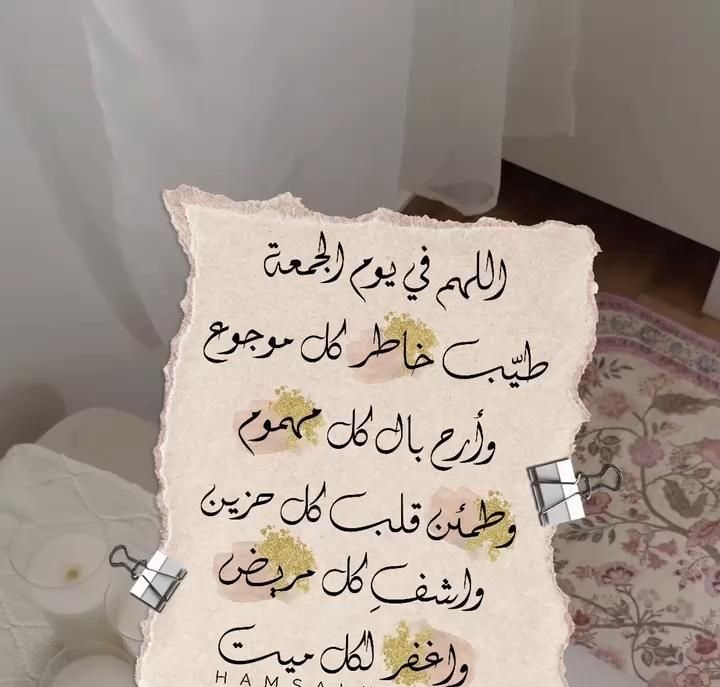 اللهم في يوم الجمعة
طيّب خاطر كل موجوع
وأرح بال كل مهموم
وطمئن قلب كل حزين
واشفِ كل مريض
واغفر لكل ميت